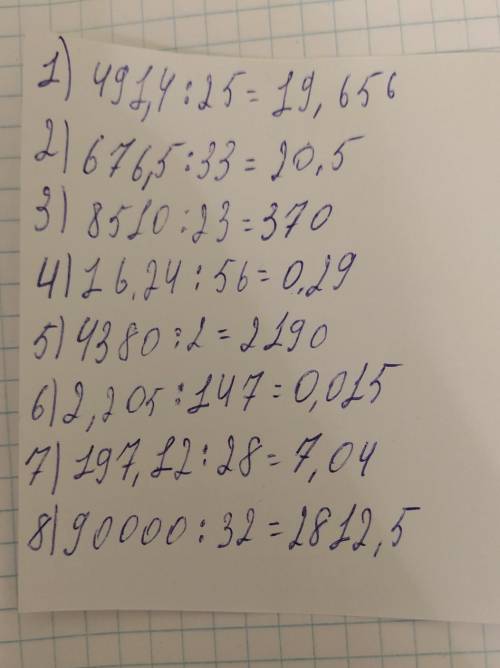 1) 491,4:25=19,656
2) 676,5:33=20,5
3) 8510:23=370
4) 16,24:56=0,29
5) 4380:2=2190
6) 2,205:147=0,015
7) 197,12:28=7,04
8) 90000:32=2812,5